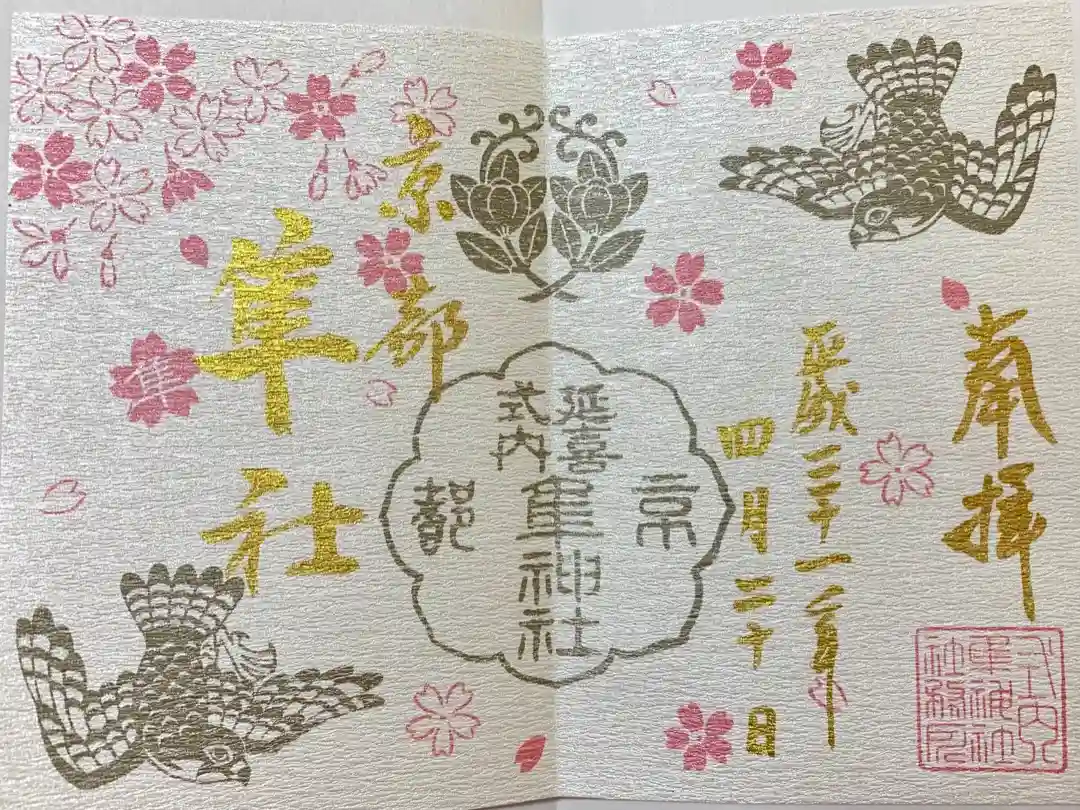 奉拝
式内
隼神社
社務所
平成三十一年
四月二十日
京
延喜
式内
隼神社
都
京都
隼社
隼